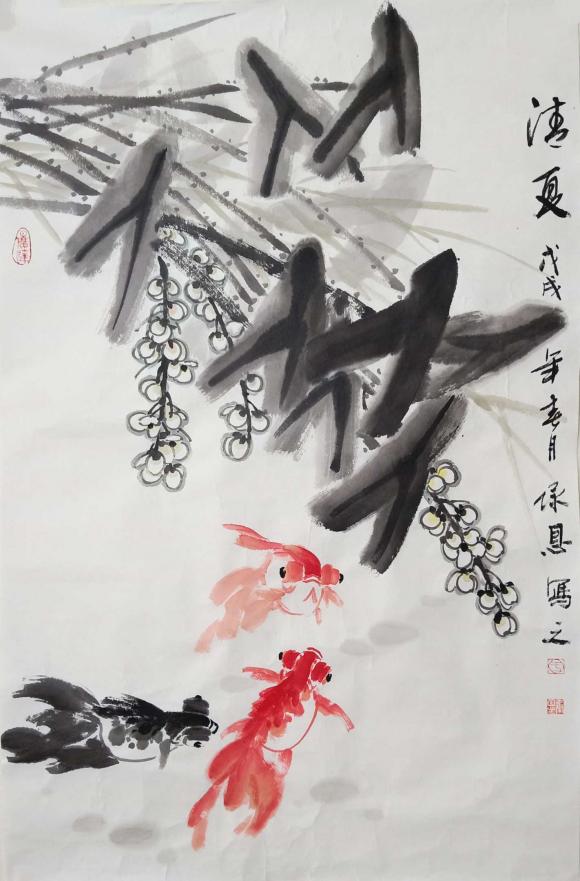 清夏
戊戌年春月保恩写之